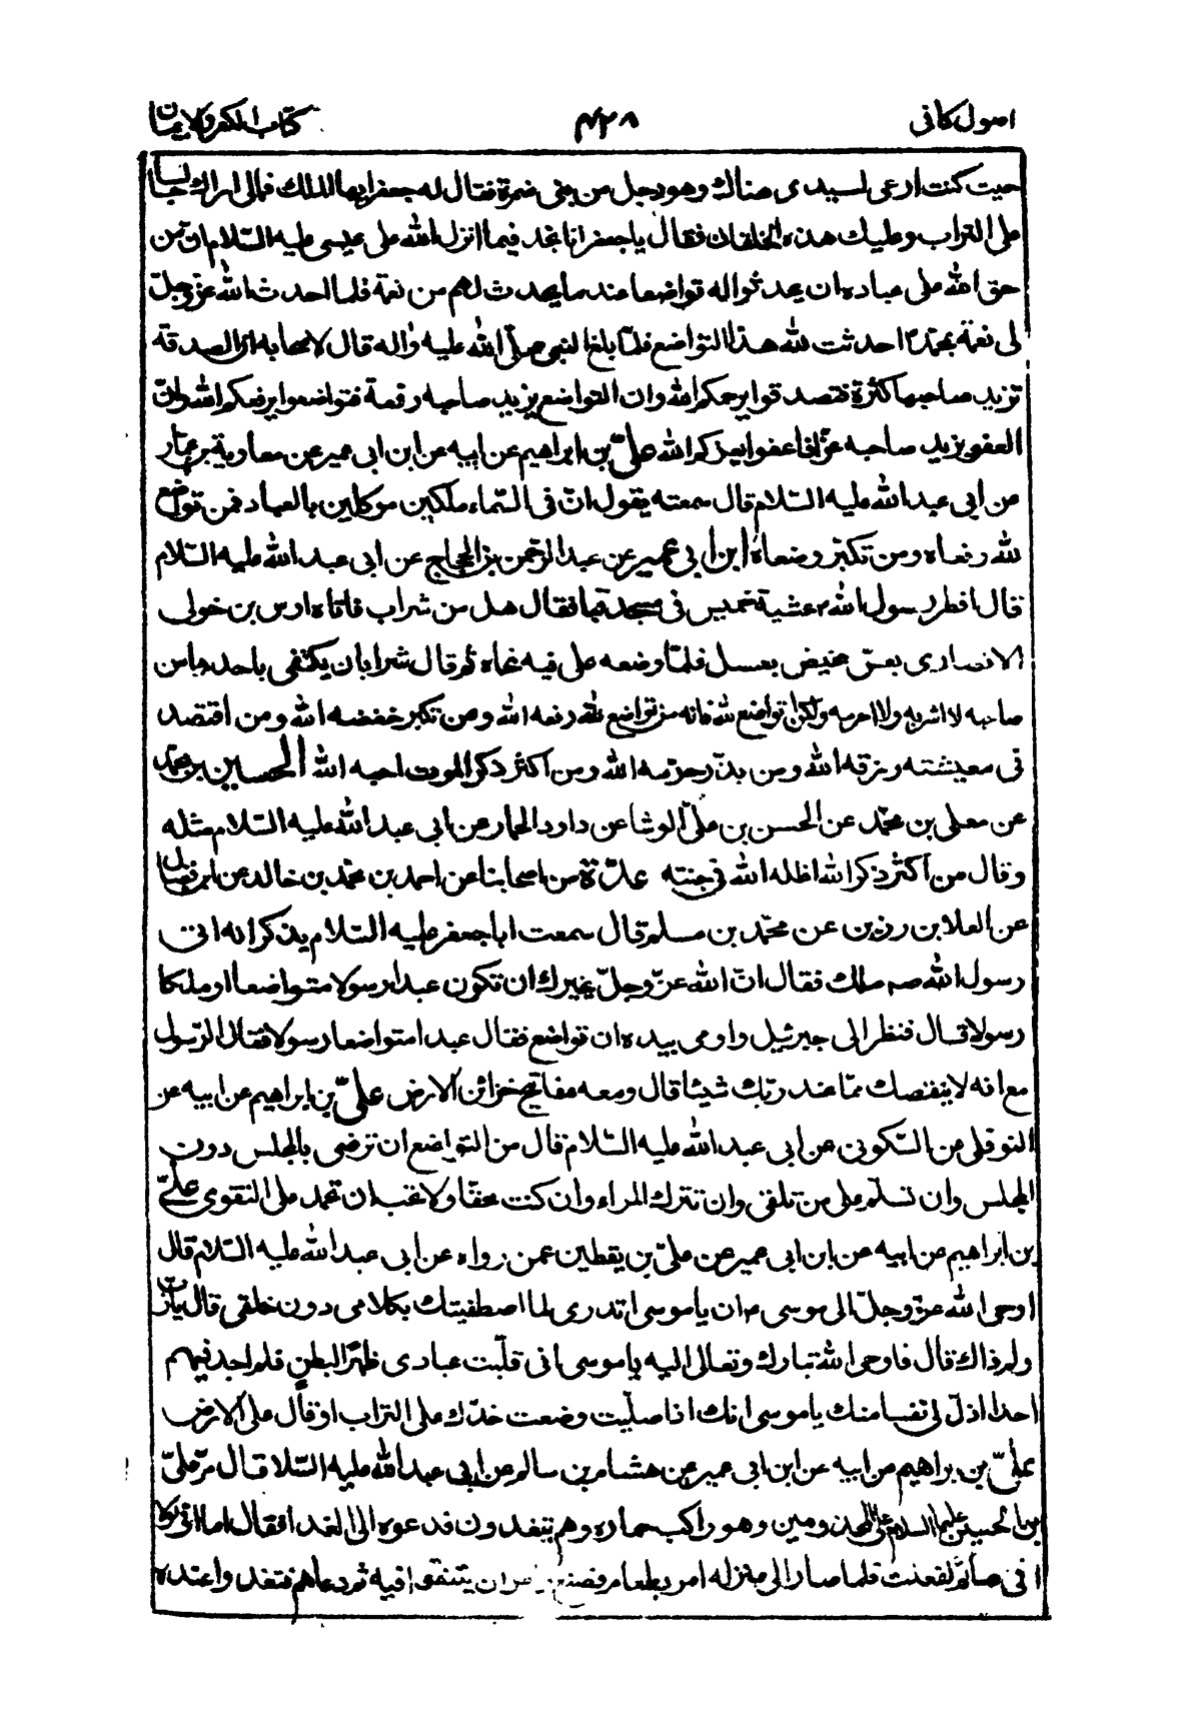 اصول كافى ۴۲۸ كتاب الكفر والايمان
حيث كنت ارعى لسيدى هناك وهو رجل من بنى ضمرة فقال له جعفر ايها الملك فمالى اراك جالسا
على التراب وعليك هذه الخلقان فقال يا جعفر انا نجد فيما انزل الله على عيسى عليه السّلام ان من
حق الله على عباده ان يحدثوا له تواضعا عند ما يحدث لهم من نعمة فلما احدث الله عزّ وجلّ
لى نعمة بمحمّد احدثت لله هذا التواضع فلمّا بلغ النبى صلّى الله عليه واله قال لاصحابه انّ الصدقة
تزيد صاحبها كثرة فتصدقوا يرحمكم الله وان التواضع يزيد صاحبه رفعة فتواضعوا يرفعكم الله وانّ
العفو يزيد صاحبه عزّا فاعفوا يعزكم الله علىّ بن ابراهيم عن ابيه عن ابن ابى عمير عن معاوية بن عمّار
عن ابى عبد الله عليه السّلام قال سمعته يقول انّ فى السّماء ملكين موكلين بالعباد فمن تواضع
لله رفعاه ومن تكبّر وضعاه ابن ابى عمير عن عبد الرّحمن بن الحجاج عن ابى عبد الله عليه السّلام
قال افطر رسول الله م عشية خميس فى مسجد قبا فقال هل من شراب فاتاه اوس بن خولى
الانصارى بعسّ مخيض بعسل فلمّا وضعه على فيه نحاه ثم قال شرابان يكتفى باحدهما من
صاحبه لا اشربه ولا احرمه ولكن اتواضع لله فانه من تواضع لله رفعه الله ومن تكبر خفضه الله ومن اقتصد
فى معيشته رزقه الله ومن بذّر حرّمه الله ومن اكثر ذكر الموت احبه الله الحسين بن محمّد
عن معلى بن محمّد عن الحسن بن علىّ الوشا عن داود الحمار عن ابى عبد الله عليه السّلام مثله
وقال من اكثر ذكر الله اظله الله فى جنته عدّة من اصحابنا عن احمد بن محمّد بن خالد عن ابن فضال
عن العلا بن رزين عن محمّد بن مسلم قال سمعت ابا جعفر عليه السّلام يذكر انه اتى
رسول الله صم ملك فقال انّ الله عزّ وجلّ يخيرك ان تكون عبدا رسولا متواضعا او ملكا
رسولا قال فنظر الى جبرئيل واومى بيده ان تواضع فقال عبدا متواضعا رسولا فقال الرّسول
مع انه لا ينقصك ممّا عند ربّك شيئا قال ومعه مفاتيح خزائن الارض علىّ بن ابراهيم عن ابيه عن
النوفلى عن السّكونى عن ابى عبد الله عليه السّلام قال من التواضع ان ترضى بالمجلس دون
المجلس وان تسلّم على من تلقى وان تترك المراء وان كنت محقّا ولا تحب ان تحمد على التقوى علىّ
بن ابراهيم عن ابيه عن ابن ابى عمير عن علىّ بن يقطين عمن رواه عن ابى عبد الله عليه السّلام قال
اوحى الله عزّ وجلّ الى موسى م ان يا موسى اتدرى لما اصطفيتك بكلامى دون خلقى قال يا ربّ
ولم ذاك قال فاوحى الله تبارك وتعالى اليه يا موسى انى قلّبت عبادى ظهرًا لبطن فلم اجد فيهم
احدا اذلّ لى نفسا منك يا موسى انك اذا صلّيت وضعت خدّك على التراب او قال على الارض
علىّ بن ابراهيم عن ابيه عن ابن ابى عمير عن هشام بن سالم عن ابى عبد الله عليه السّلا قال مرّ علىّ
بن الحسين عليهما السلام على المجذومين وهو راكب حماره وهم يتغدون فدعوه الى الغداء فقال اما انى لولا
انى صائم لفعلت فلما صار الى منزله امر بطعام فصنع وامر ان يتنوّقوا فيه ثم دعاهم فتغدوا عنده